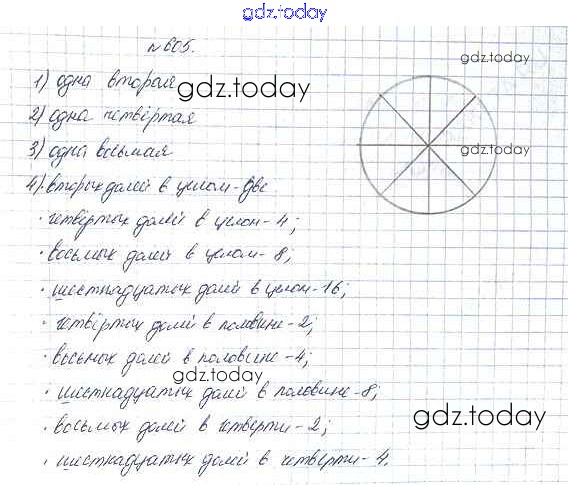 gdz.today
№ 605.
gdz.today
1) одна вторая
gdz.today
2) одна четвёртая
3) одна восьмая
gdz.today
4) · вторых долей в целом - две
· четвёртых долей в целом - 4;
· восьмых долей в целом - 8;
· шестнадцатых долей в целом - 16;
· четвёртых долей в половине - 2;
· восьмых долей в половине - 4;
gdz.today
· шестнадцатых долей в половине - 8;
gdz.today
· восьмых долей в четверти - 2;
· шестнадцатых долей в четверти - 4.